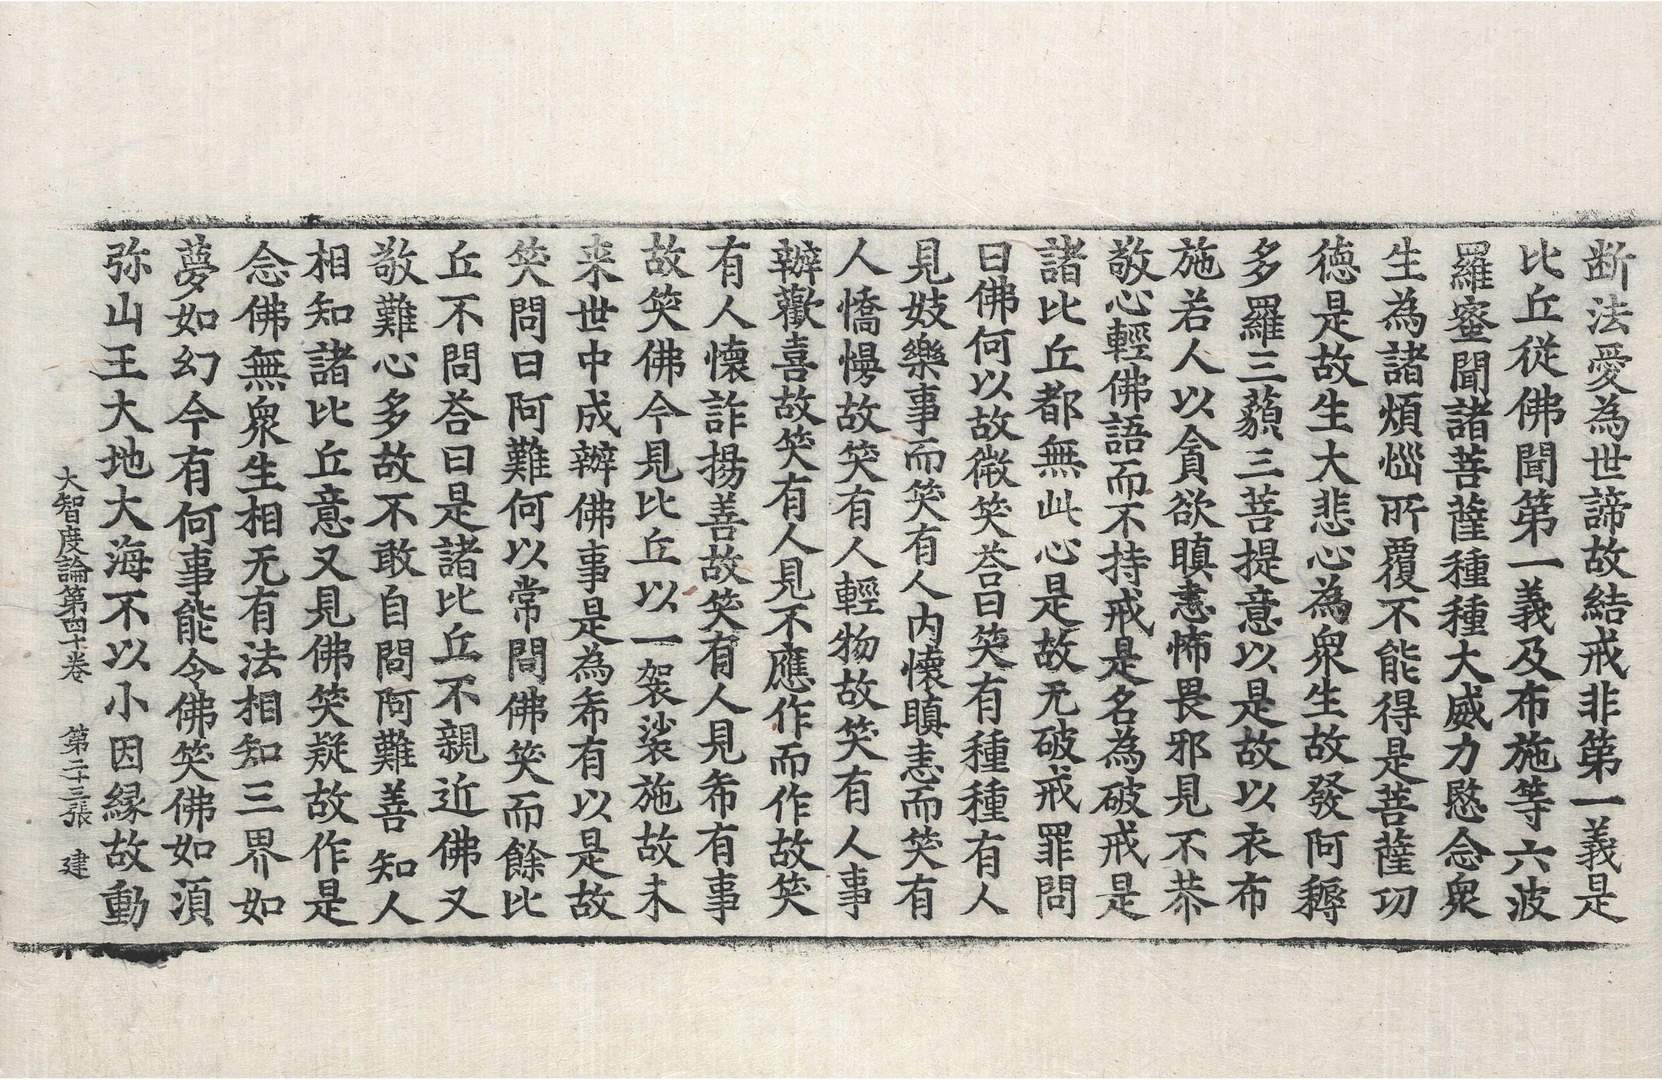 断法愛為世諦故結戒非第一義是
比丘従佛聞第一義及布施等六波
羅蜜聞諸菩薩種種大威力愍念衆
生為諸煩惱所覆不能得是菩薩功
德是故生大悲心為衆生故發阿耨
多羅三藐三菩提意以是故以衣布
施若人以貪欲瞋恚怖畏邪見不恭
敬心輕佛語而不持戒是名為破戒是
諸比丘都無此心是故无破戒罪問
曰佛何以故微笑荅曰笑有種種有人
見妓樂事而笑有人内懷瞋恚而笑有
人憍慢故笑有人輕物故笑有人事
辦歡喜故笑有人見不應作而作故笑
有人懷詐揚善故笑有人見希有事
故笑佛今見比丘以一袈裟施故未
来世中成辦佛事是為希有以是故
笑問曰阿難何以常問佛笑而餘比
丘不問荅曰是諸比丘不親近佛又
敬難心多故不敢自問阿難善知人
相知諸比丘意又見佛笑疑故作是
念佛無衆生相无有法相知三界如
夢如幻今有何事能令佛笑佛如湏
弥山王大地大海不以小因縁故動
大智度論第四十卷 第二十三張 建